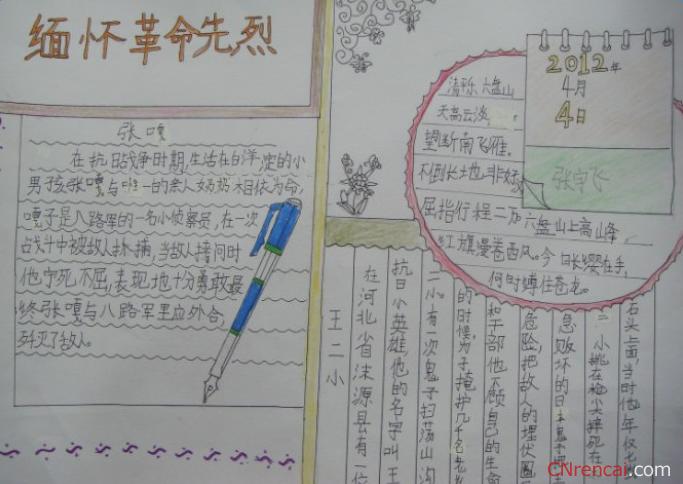 缅怀革命先烈
张嘎
在抗日战争时期,生活在白洋淀的小
男孩张嘎与唯一的亲人奶奶相依为命,
嘎子是八路军的一名小侦察员,在一次
战斗中被敌人抓捕,当敌人拷问时
他宁死不屈,表现地十分勇敢最
终张嘎与八路军里应外合,
歼灭了敌人。
2012年
4月
4日
张宇飞
清平乐 六盘山
天高云淡,
望断南飞雁。
不到长城非好汉
屈指行程二万 六盘山上高峰,
红旗漫卷西风。今日长缨在手,
何时缚住苍龙。
王二小
在河北省涞源县有一位
抗日小英雄,他的名字叫王
二小有一次鬼子扫荡山沟
的时候,为了掩护几千名老
和干部他不顾自己的生命
危险,把敌人的埋伏圈
急败坏的日本鬼子
二小挑在枪尖摔死在
石头上面,当时他年仅
CNrencai.com